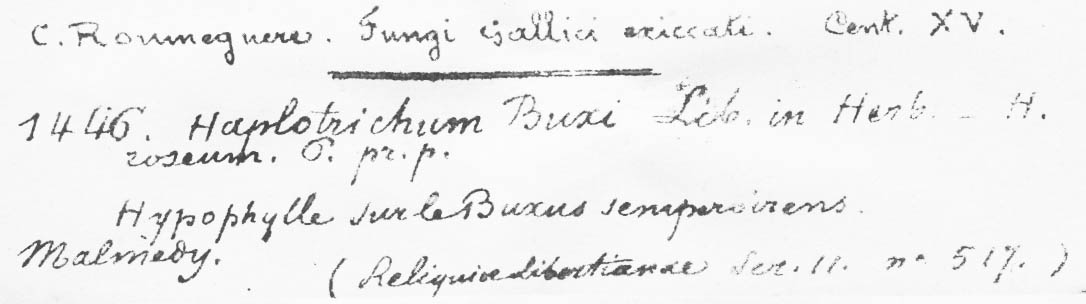 C. Roumeguere. Fungi Gallici exiccati. Cent. XV.
1446. Haplotrichum Buxi Lib. in Herb. – H.
roseum. C. pr. p.
Hypophylle sur le Buxus sempervirens.
Malmedy.
(Reliquiae Libertianae Ser. II. no 517.)